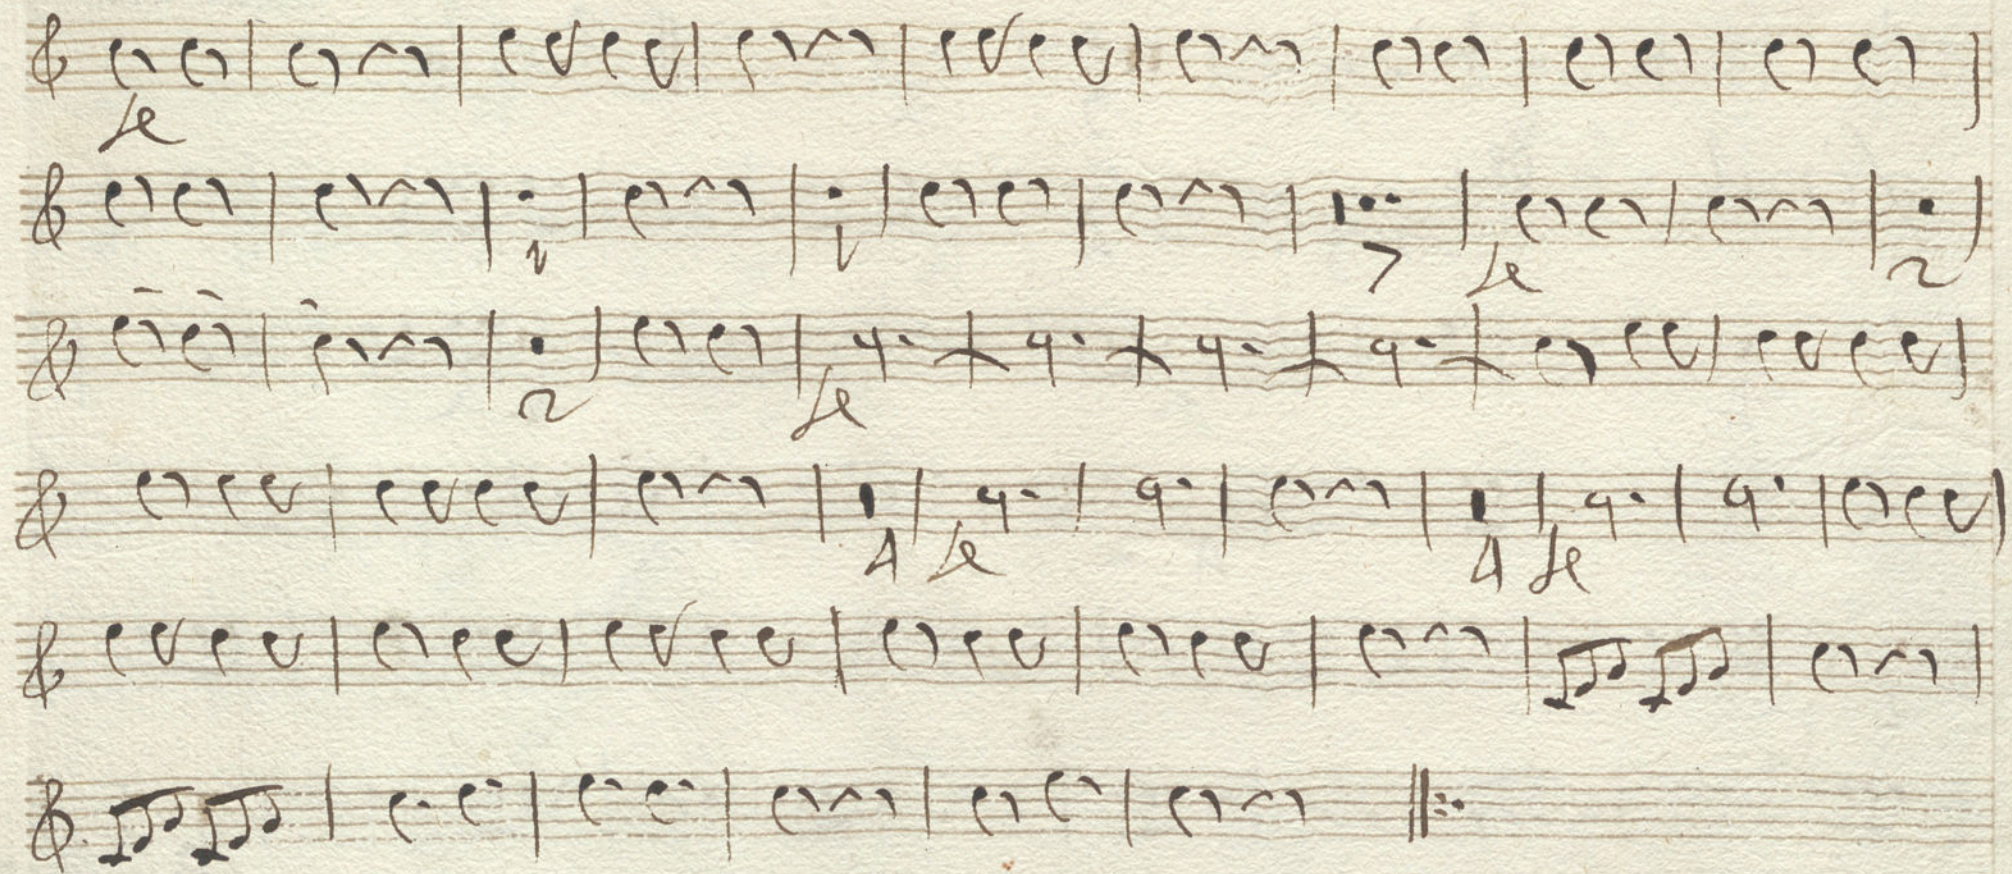 fe
1 1 7 fe 2
2 fe
4 fe 4 fe